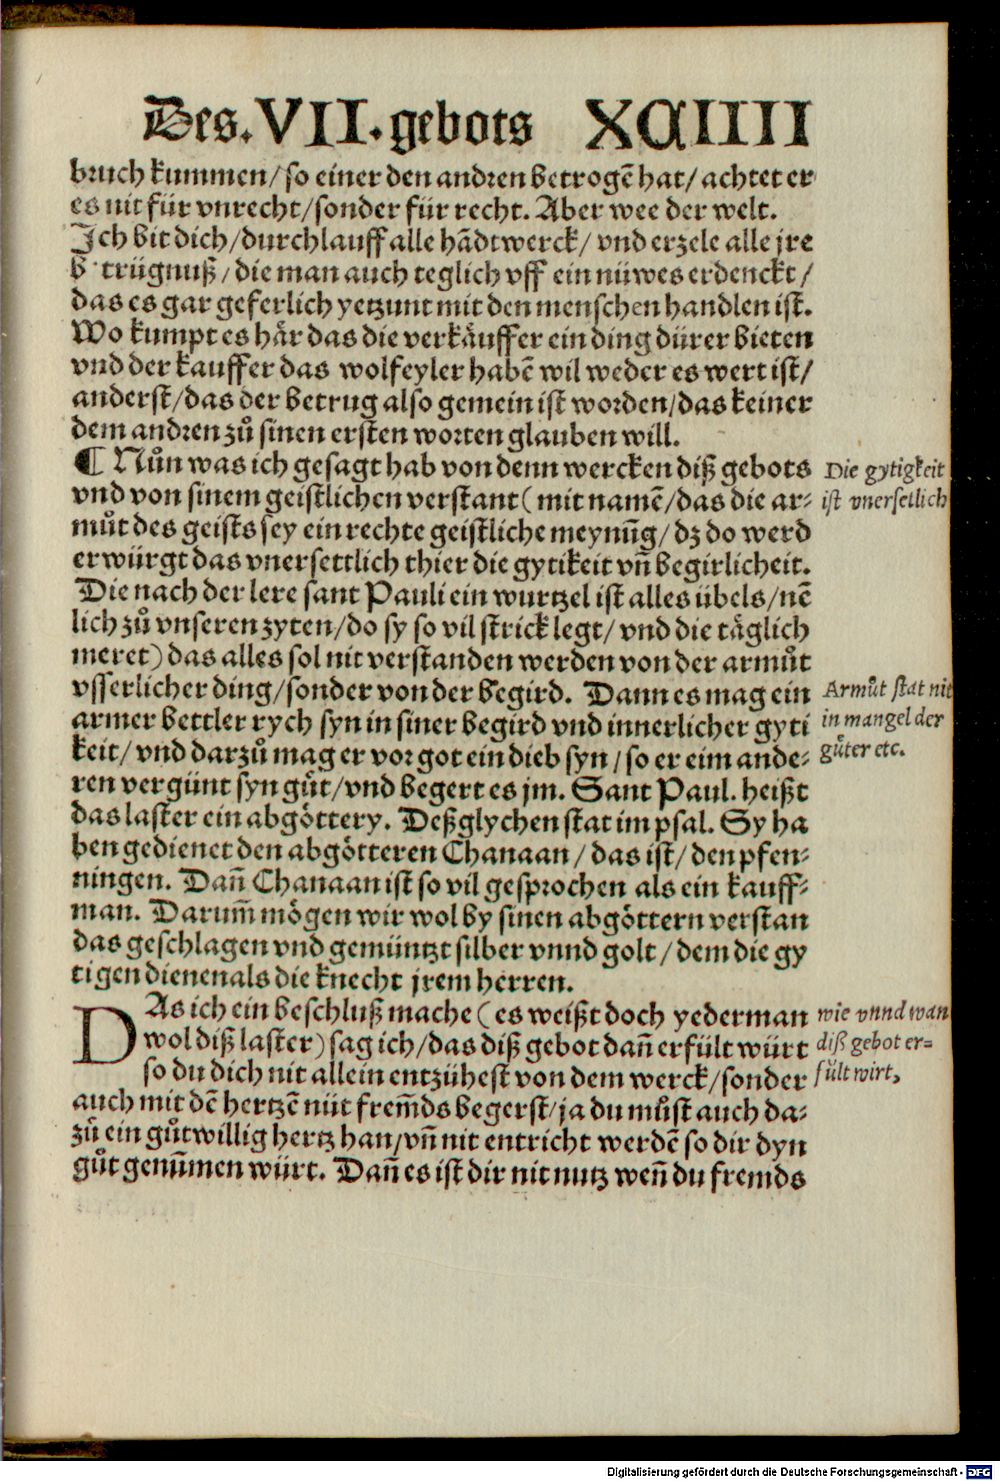 Des. VII. gebots XCIIII
bruch kummen / so einer den andren betrogē hat / achtet er
es nit für vnrecht / sonder für recht. Aber wee der welt.
Ich bit dich / durchlauff alle hādtwerck / vnd erzele alle jre
b trügnuß / die man auch teglich vff ein nüwes erdenckt /
das es gar geferlich yetzunt mit den menschen handlen ist.
Wo kumpt es här das die verkäuffer ein ding dürer bieten
vnd der kauffer das wolfeyler habē wil weder es wert ist /
anderst / das der betrug also gemein ist worden / das keiner
dem andren zů sinen ersten worten glauben will.
¶ Nůn was ich gesagt hab von denn wercken diß gebots
vnd von sinem geistlichen verstant ( mit namē / das die ar⸗
můt des geists sey ein rechte geistliche meynūg / dz do werd
erwürgt das vnersettlich thier die gytikeit vn̄ begirlicheit.
Die nach der lere sant Pauli ein wurtzel ist alles übels / nē
lich zů vnseren zyten / do sy so vil strick legt / vnd die täglich
meret ) das alles sol nit verstanden werden von der armůt
vsserlicher ding / sonder von der begird. Dann es mag ein
armer bettler rych syn in siner begird vnd innerlicher gyti
keit / vnd darzů mag er vor got ein dieb syn / so er eim ande⸗
ren vergünt syn gůt / vnd begert es jm. Sant Paul. heißt
das laster ein abgöttery. Deßglychen stat im psal. Sy ha
ben gedienet den abgötteren Chanaan / das ist / den pfen⸗
ningen. Dan̄ Chanaan ist so vil gesprochen als ein kauff⸗
man. Darum̄ mögen wir wol by sinen abgöttern verstan
das geschlagen vnd gemüntzt silber vnnd golt / dem die gy
tigen dienen als die knecht jrem herren.
DAs ich ein beschluß mache ( es weißt doch yederman
wol diß laster ) sag ich / das diß gebot dan̄ erfült würt
so du dich nit allein entzühest von dem werck / sonder
auch mit dē hertzē nüt frem̄ds begerst / ja du můst auch da⸗
zů ein gůtwillig hertz han / vn̄ nit entricht werdē so dir dyn
gůt genum̄en würt. Dan̄ es ist dir nit nutz wen̄ du fremds
Die gytigkeit
ist vnersetlich
Armůt stat nit
in mangel der
gůter etc.
wie vnnd wan
diß gebot er=
fült wirt,
Digitalisierung gefördert durch die Deutsche Forschungsgemeinschaft - DFG